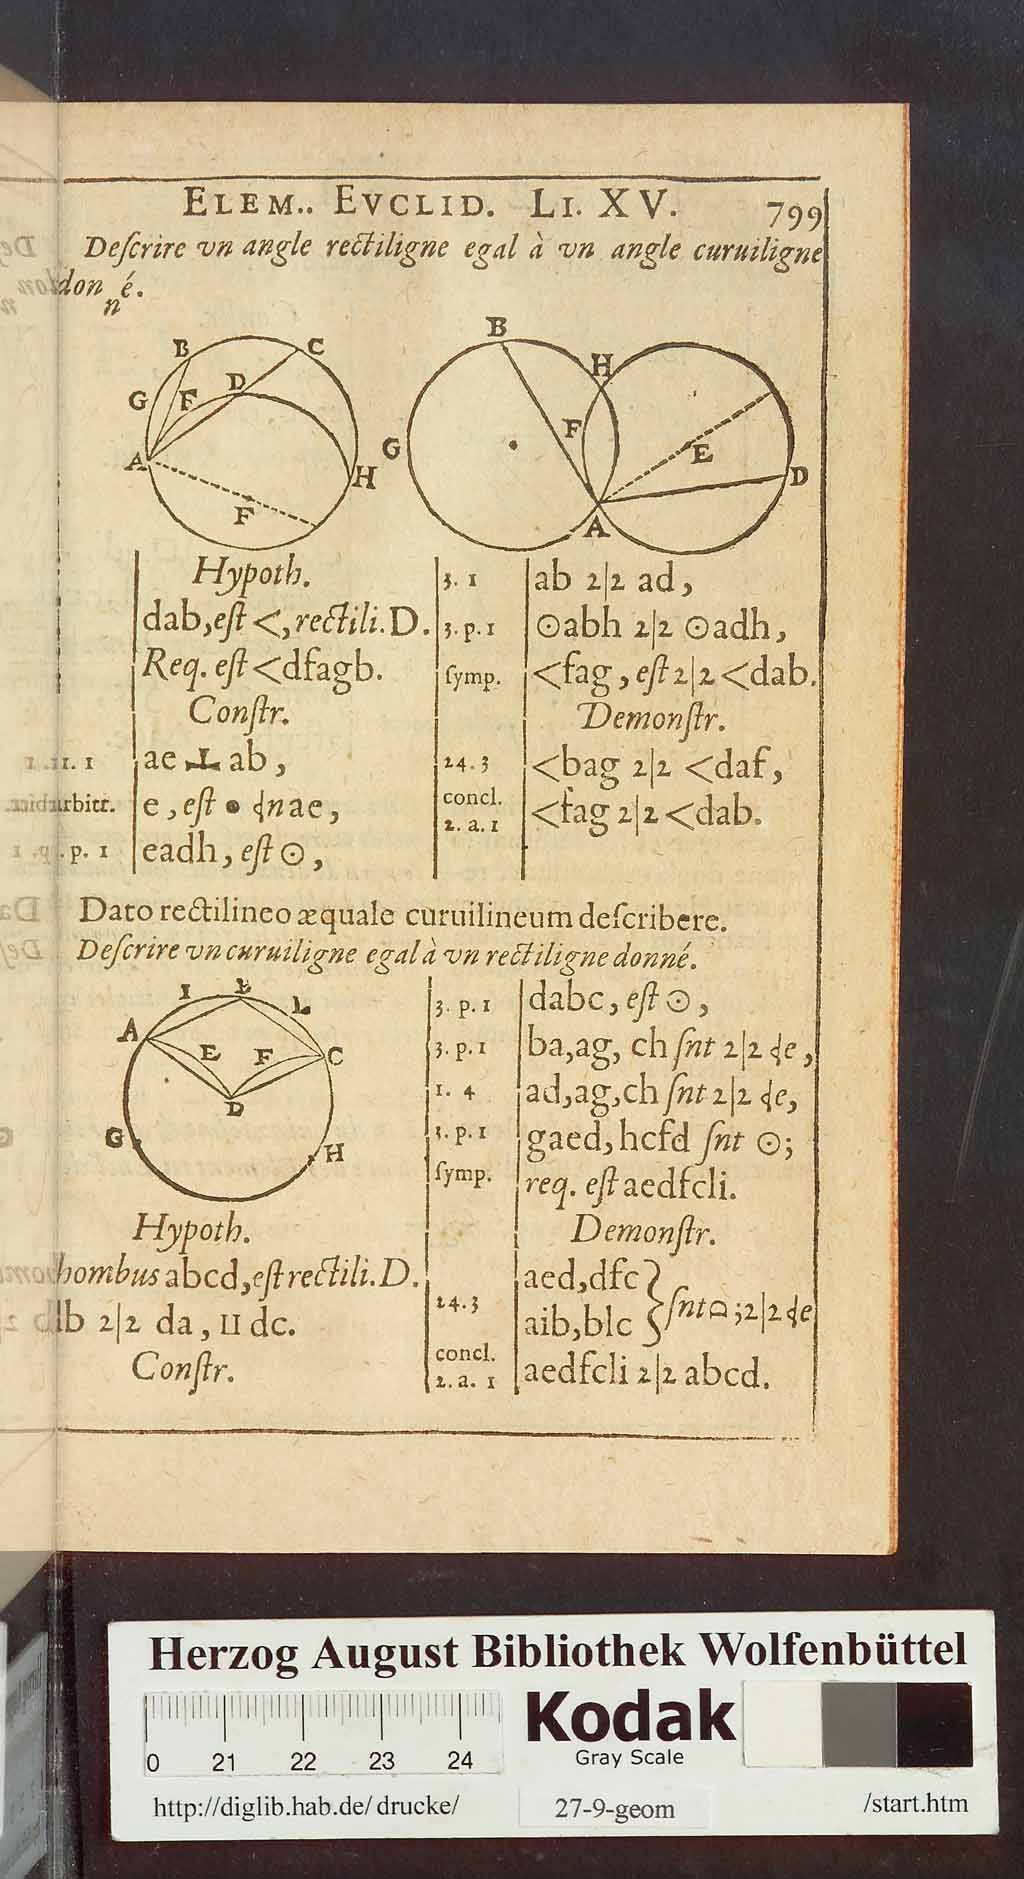 ELEM.. EVCLID. LI. XV. 799
Deſcrire vn angle rectiligne egal à vn angle curuiligne
don é.
n
B C D G F A H F
B H F G E D A
Hypoth.
dab, eſt <, rectili. D.
Req. eſt <dfagb.
Conſtr.
11. 1 ae ⊥ ab,
arbitr. e, eſt • ꞟn ae,
p. 1 eadh, eſt ⊙,
3. 1 ab 2|2 ad,
3. p. 1 ⊙abh 2|2 ⊙adh,
ſymp. <fag, eſt 2|2 <dab.
Demonſtr.
24. 3 <bag 2|2 <daf,
concl.
2. a. 1 <fag 2|2 <dab.
Dato rectilineo æquale curuilineum deſcribere.
Deſcrire vn curuiligne egal à vn rectiligne donné.
I B L A E F C D G H
Hypoth.
hombus abcd, eſt rectili. D.
db 2|2 da, II dc.
Conſtr.
3. p. 1 dabc, eſt ⊙,
3. p. 1 ba, ag, ch ſnt 2|2 ꞟe,
1. 4 ad, ag, ch ſnt 2|2 ꞟe,
3. p. 1 gaed, hcfd ſnt ⊙;
ſymp. req. eſt aedfcli.
Demonſtr.
aed, dfc }
24. 3 aib, blc } ſnt ⌓; 2|2 ꞟe
concl.
2. a. 1 aedfcli 2|2 abcd.
Herzog August Bibliothek Wolfenbüttel
0 21 22 23 24
Kodak
Gray Scale
http://diglib.hab.de/drucke/ 27-9-geom /start.htm